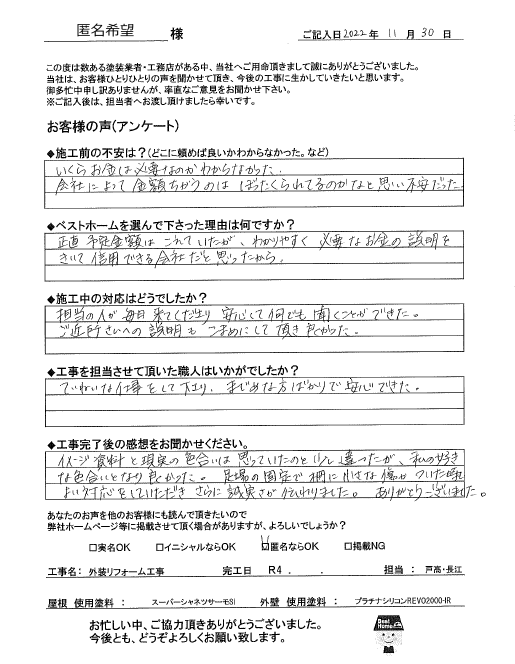 匿名希望 様 ご記入日 2022 年 11 月 30 日
この度は数ある塗装業者・工務店がある中、当社へご用命頂きまして誠にありがとうございました。
当社は、お客様ひとりひとりの声を聞かせて頂き、今後の工事に生かしていきたいと思います。
御多忙中申し訳ありませんが、率直なご意見をお聞かせ下さい。
※ご記入後は、担当者へお渡し頂けましたら幸いです。
お客様の声(アンケート)
◆施工前の不安は？(どこに頼めば良いかわからなかった。など)
いくらお金は必要なのかわからなかった。
会社によって金額ちがうのは ぼったくられてるのかなと思い不安だった
◆ベストホームを選んで下さった理由は何ですか？
正直 予定金額は こえていたが、わかりやすく 必要なお金の説明を
きいて信用できる会社だと思ったから。
◆施工中の対応はどうでしたか？
担当の人が毎日来てくださり 安心して何でも聞くことができた。
ご近所さんへの説明も こまめにして頂き良かった。
◆工事を担当させて頂いた職人はいかがでしたか？
ていねいな仕事をして下さり、まじめな方ばかりで安心できた。
◆工事完了後の感想をお聞かせください。
イメージ資料と現実の色合いは思っていたのと少し違ったが、私の好き
な色合いとなり良かった。 足場の固定で柵に小さな傷がついた時
よい対応をしていただき さらに誠実さが伝わりました。 ありがとうございました。
あなたのお声を他のお客様にも読んで頂きたいので
弊社ホームページ等に掲載させて頂く場合がありますが、よろしいでしょうか？
□実名OK □イニシャルならOK ☑匿名ならOK □掲載NG
工事名： 外装リフォーム工事 完工日 R4 . . 担当： 戸高・長江
屋根 使用塗料： スーパーシャネツサーモSi 外壁 使用塗料： プラチナシリコンREVO2000-IR
お忙しい中、ご協力頂きありがとうございました。
今後とも、どうぞよろしくお願い致します。
Best Home